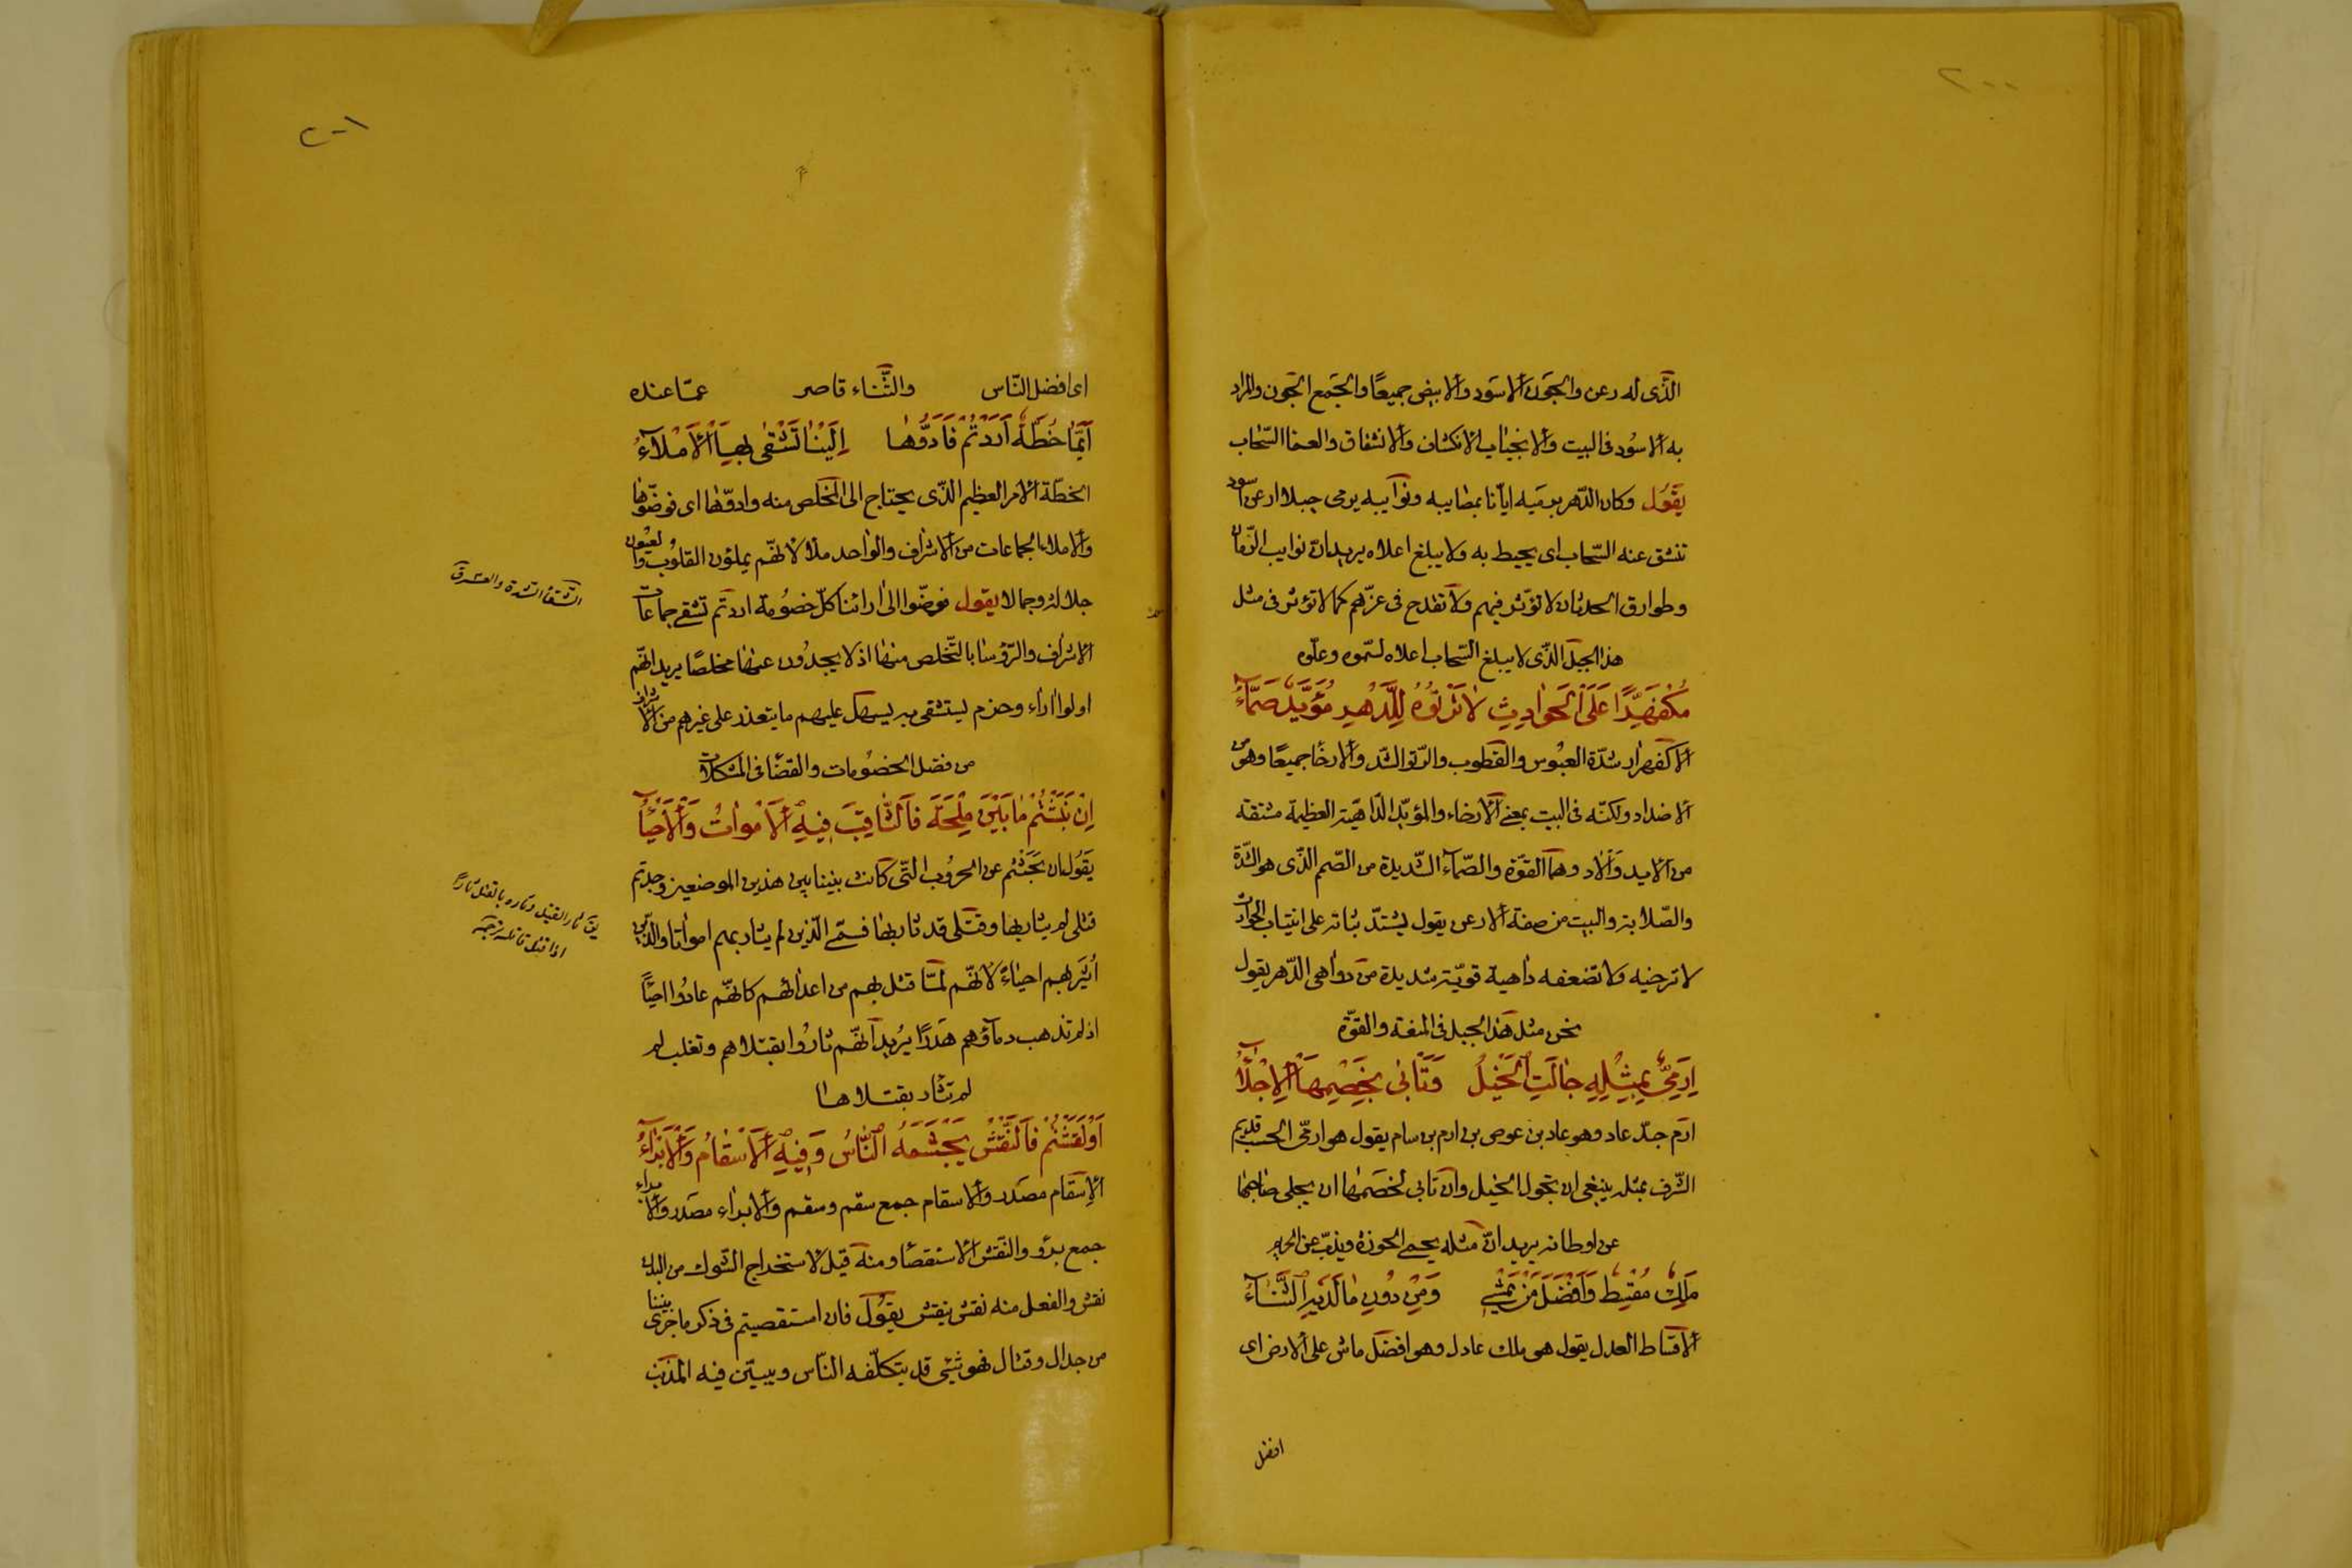 ٢٠٠
الذى له رعن والجون الاسود والابيض جميعًا والجمع الجون والمراد
به الاسود فى البيت والانجياب الانكشاف والانشقاق والعما السّحاب
يقول وكان الدّهر برميه ايانا بمصايبه ونوايبه يرمى جبلا ارعن اسود
تنشق عنه السّحاب اى يحيط به ولا يبلغ اعلاه يريد انّ نوايب الزّمان
وطوارق الحدثان لا تؤثر فيهم ولا تقدح فى عزّهم كما لا تؤثر فى مثل
هذا الجبل الذّى لا يبلغ السّحاب اعلاه لسّموه وعلّوه
مُكْفَهِرًّا عَلَى الْحَوادِثِ لا تَرْتُوْهُ لِلدَّهْرِ مُؤَيِّدٌ صَمَّآءُ
الاكفهرار شدّة العبُوس والقطوب والرّتو الشّد والارخأ جميعًا وهو من
الاضداد ولكنّه فى البيت بمعنى الارخاء والمؤيّد الدّاهية العظيمة مشتقة
من الايد والاد وهما القوّة والصّمآء الشّديدة من الصّمم الذّى هو الشّدة
والصّلابة والبيت من صفة الارعن يقول يشتدّ ثباته على انتياب الحوادث
لا ترخيه ولا تضعفه داهية قويّة شديدة من دواهى الدّهر يقول
نحن مثل هذا الجبل فى المنعة والقوّة
اِرَمِىٌّ بِمِثْلِهِ جالَتِ الْخَيْلُ وَتَأْبى لِخَصْمِهَا الاِجْلآءُ
ارم جدّ عاد وهو عاد بن عوص بن ارم بن سام يقول هو ارمّى الحسب قديم
الشّرف بمثله ينبغى ان تجول الخيل وان تابى لخصمها ان يجلى صاحبها
عن اوطانه يريد انّ مثله يحمى الحوزة ويذبّ عن الحريم
مَلِكٌ مُقْسِطٌ وَاَفْضَلُ مَنْ يَمْشِى وَمِنْ دُونِ ما لَدَيْهِ الثَّنآءُ
الاقساط العدل يقول هو ملك عادل وهو افضل ماش على الارض اى
افضل
٢٠١
اى افضل النّاس والثّناء قاصر عمّا عنده
اَيَّما خُطَّةٍ اَرَدْتُمْ فَاَدُّوْها اِلَيْنا تَشْقى بِهَا الاَمْلآءُ
الخطّة الامر العظيم الذّى يحتاج الى المخلص منه وادوّها اى فوضّوها
والاملاء الجماعات من الاشراف والواحد ملأ لانّهم يملؤن القلوب والعيون
جلالة وجمالا يقول فوضّوا الى ارائنا كلّ خصُومة اردتم تشقى جماعات
الاشراف والرّؤسا بالتّخلص منها اذ لا يجدُون عنها مخلصًا يريد انّهم
اولوا اراء وحزم ليشتفى به يسهل عليهم ما يتعذر على غيرهم من الاشراف
من فصل الخصُومات والقضأ فى المشكلات
اِنْ نَبَشْتُمْ ما بَيْنَ مِلْحَةَ فَالصّاقِبَ فِيْهِ الاَمْواتُ وَالاَحْيآءُ
يقولان بحثتم عن الحروب التّى كانت بيننا بين هذين الموضعين وجدتم
قتلى لم يثاربها وقتلى قد ثاربها فسمّى الّذين لم يثاربهم امواتا والّذين
اُثئر بهم احياءً لانّهم لمّا قتل بهم من اعدائهم كانّهم عادُوا احيأ
اذ لم تذهب دمآؤهم هَدرًا يُريد انّهم ثارُوا بقتلاهم وتغلب لم
لم تثأر بقتلاها
اَوْ نَقَشْتُمْ فَالنَّقْشُ يَجْشَمُهُ النّاسُ وَفِيْهِ الاَسْقامُ وَالاَبْرآءُ
الاسقام مصدر والاسقام جمع سقم وسقم والابراء مصدر والابراء
جمع برؤ والنّقش الاستقصأ ومنه قيل لاستخراج الشّوك من البدن
نقش والفعل منه نقش ينقش يقول فان استقصيتم فى ذكر ما جرى بيننا
من جدال وقتال فهو شئى قد يتكلّفه النّاس ويبيّن فيه المذنب
الشّقأ الشّدة والعسر
يق ثار القتيل وثاره بالقتل ثارًا
اذا قتل قاتله ترجمه